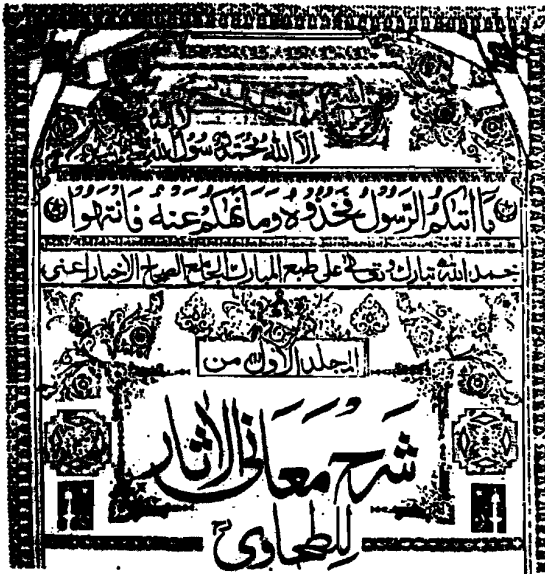 لا اله
الا الله محمد رسول الله
ما اتىكم الرسول فخذوه وما نهىكم عنه فانتهوا
حمد الله تبارك وتعالى على طبع المبارك الجامع الصحاح الاخبار اعنى
المجلد الاول من
شرح معانى الاثار
للطحاوى